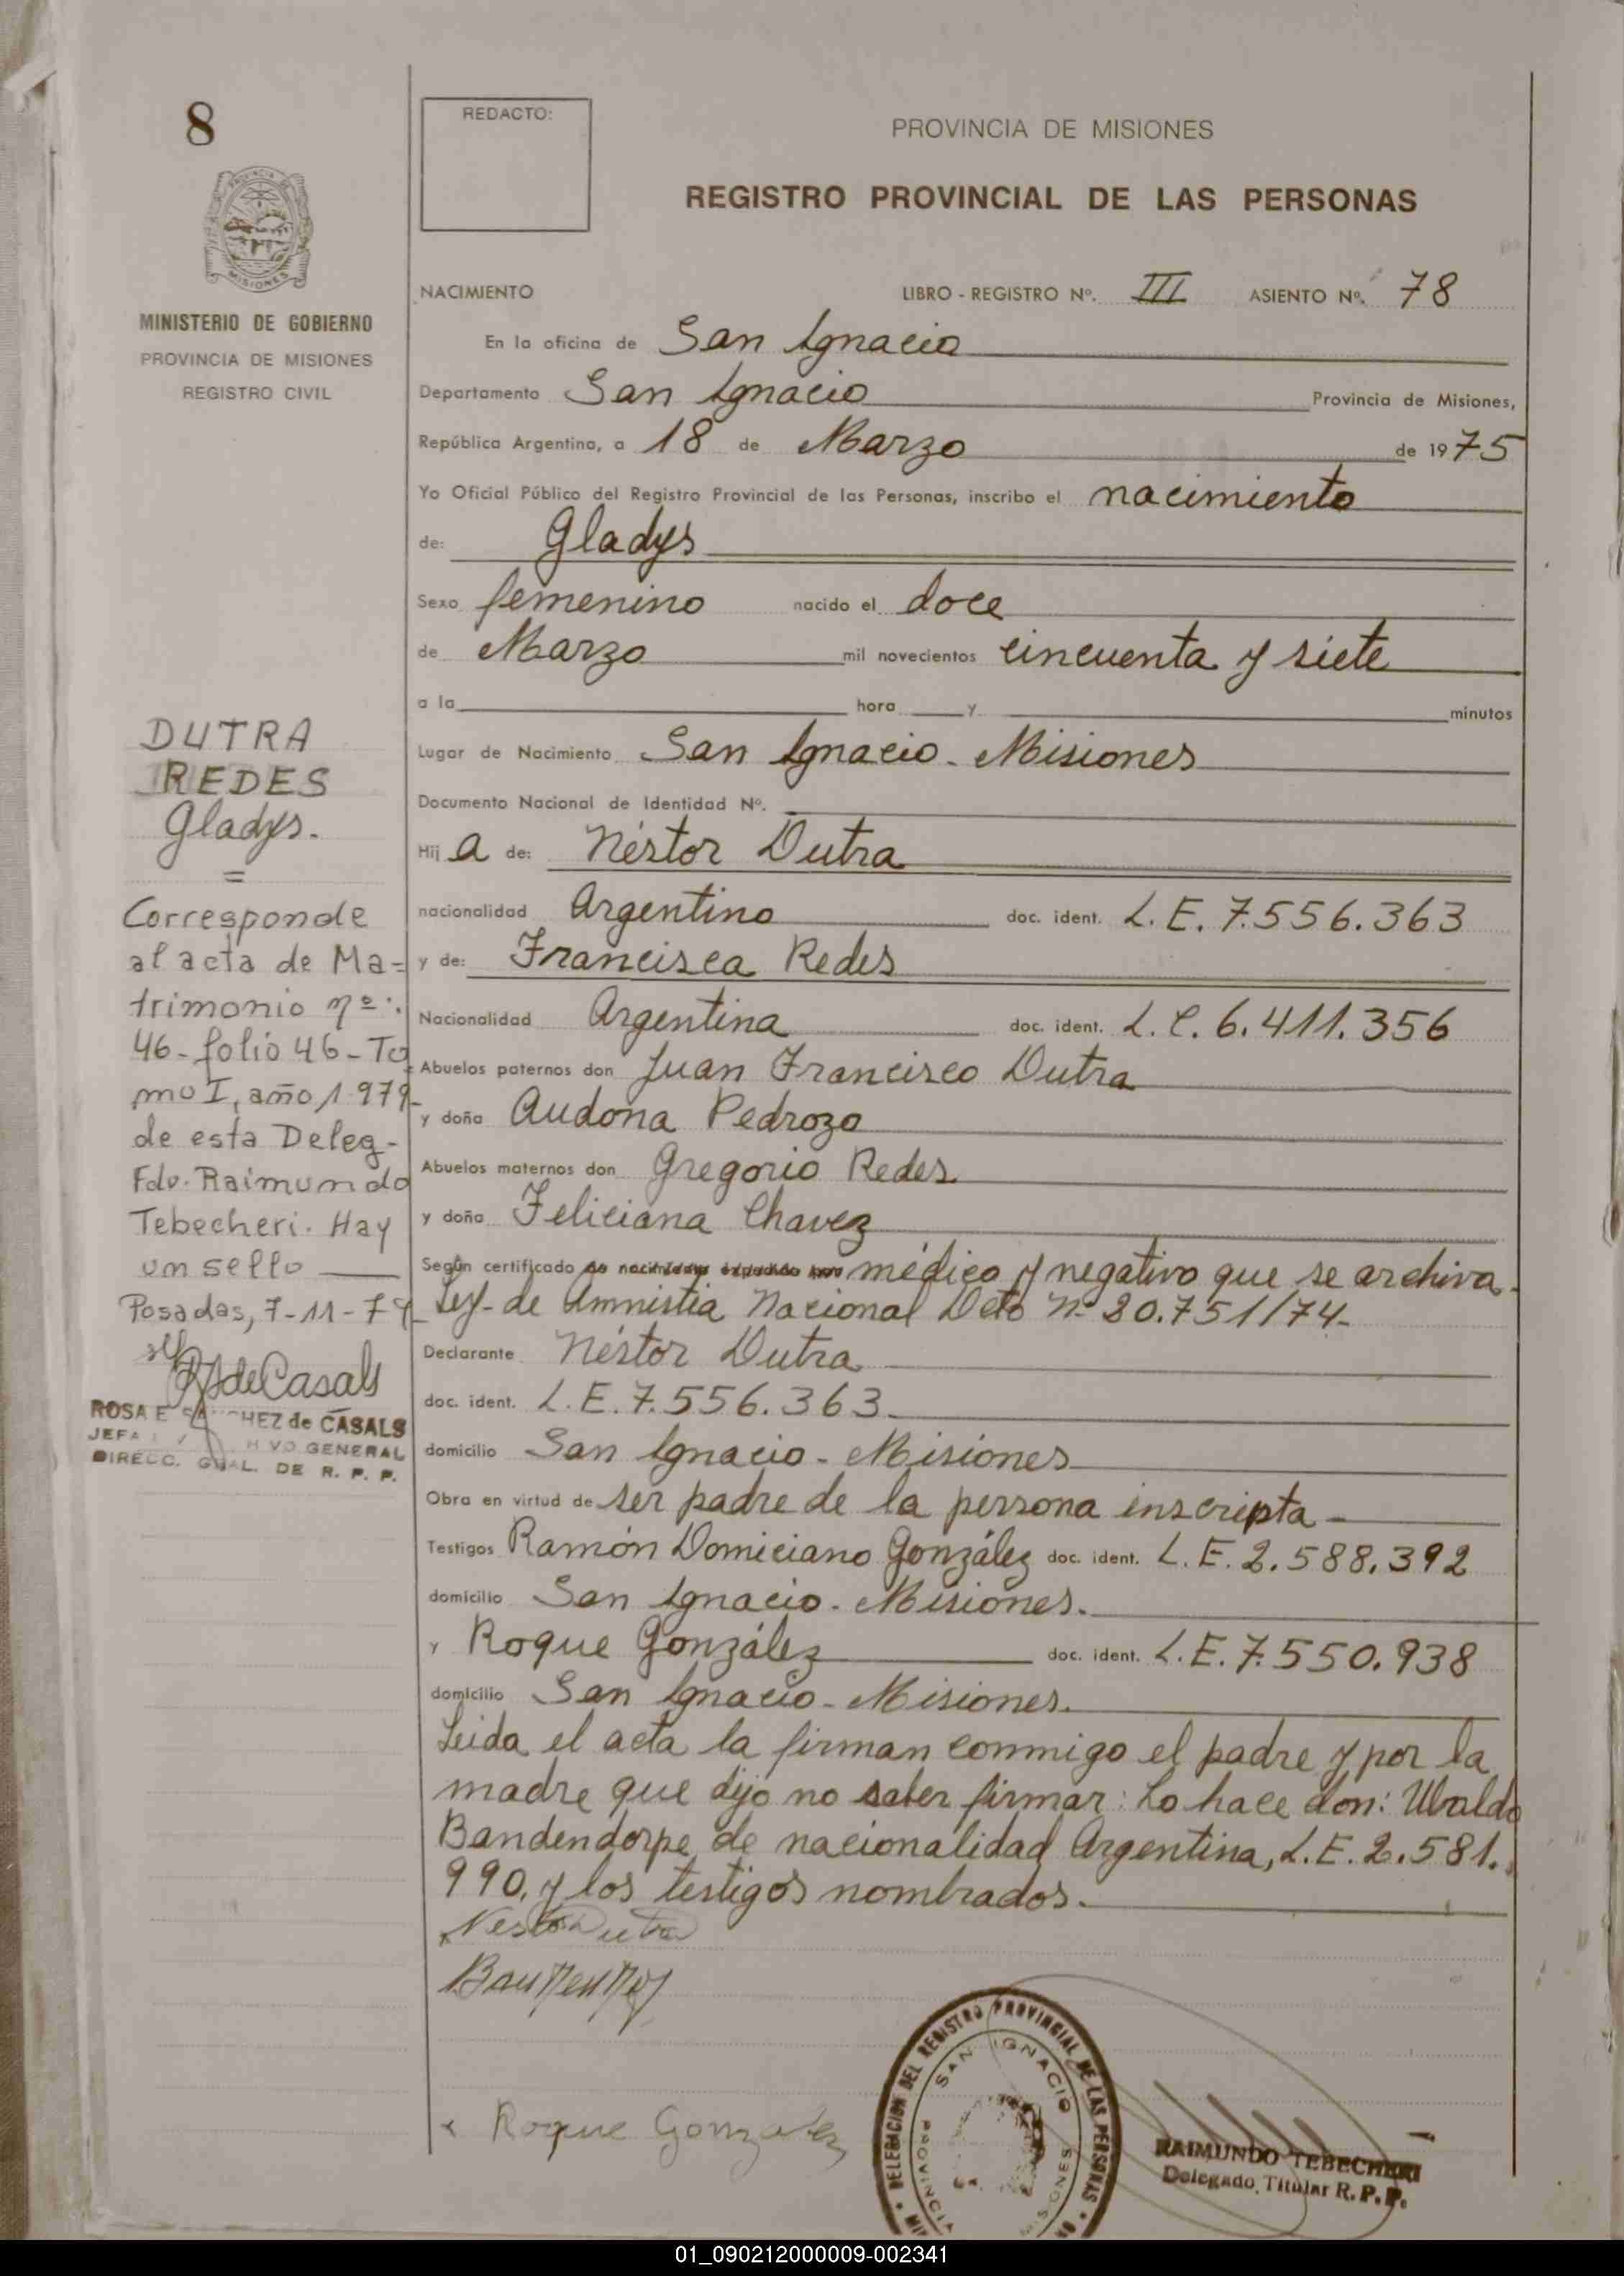 8
REDACTO:
PROVINCIA DE MISIONES
REGISTRO PROVINCIAL DE LAS PERSONAS
MINISTERIO DE GOBIERNO
PROVINCIA DE MISIONES
REGISTRO CIVIL
NACIMIENTO LIBRO - REGISTRO Nº. III ASIENTO Nº. 78
En la oficina de San Ignacio
Departamento San Ignacio Provincia de Misiones,
República Argentina, a 18 de Marzo de 1975
Yo Oficial Público del Registro Provincial de las Personas, inscribo el nacimiento
de: Gladys
Sexo femenino nacido el doce
de Marzo mil novecientos cincuenta y siete
a la hora y minutos
Lugar de Nacimiento San Ignacio - Misiones
Documento Nacional de Identidad Nº.
Hij a de: Néstor Dutra
nacionalidad Argentino doc. ident. L. E. 7.556.363
y de: Francisca Redes
Nacionalidad Argentina doc. ident. L. C. 6.411.356
Abuelos paternos don Juan Francisco Dutra
y doña Audona Pedrozo
Abuelos maternos don Gregorio Redes
y doña Feliciana Chavez
Según certificado de nacimiento expedido por médico y negativo que se archiva.
Ley de Amnistia Nacional Dcto Nº 20.751/74-
Declarante Néstor Dutra
doc. ident. L. E. 7.556.363
domicilio San Ignacio - Misiones
Obra en virtud de ser padre de la persona inscripta -
Testigos Ramón Domiciano González doc. ident. L. E. 2.588.392
domicilio San Ignacio - Misiones.
y Roque González doc. ident. L. E. 7.550.938
domicilio San Ignacio - Misiones.
Leida el acta la firman conmigo el padre y por la
madre que dijo no saber firmar: Lo hace don: Ubaldo
Bandendorpe de nacionalidad Argentina, L. E. 2.581.
990, y los testigos nombrados.-
Nestor Dutra
Roque Gonzalez
DUTRA
REDES
Gladys.
=
Corresponde
al acta de Ma=
trimonio nº:
46-folio 46-To
mo I, año 1.979-
de esta Deleg-
Fdo. Raimundo
Tebecheri. Hay
un sello
Posadas, 7-11-79
de Casals
ROSA E HEZ de CASALS
JEFA GENERAL
DIRECC. GRAL. DE R. P. P.
DELEGACION DEL REGISTRO PROVINCIAL DE LAS PERSONAS
SAN IGNACIO
PROVINCIA MISIONES
RAIMUNDO TEBECHERI
Delegado Titular R. P. P.
01_090212000009-002341